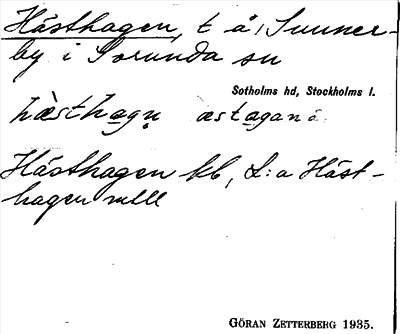 Hästhagen, t å, Sunner-
by i Sorunda sn
Sotholms hd, Stockholms l.
hæ̀sthagn̥ æstaganå
Hästhagen kb, L:a Häst-
hagen
GÖRAN ZETTERBERG 1935.